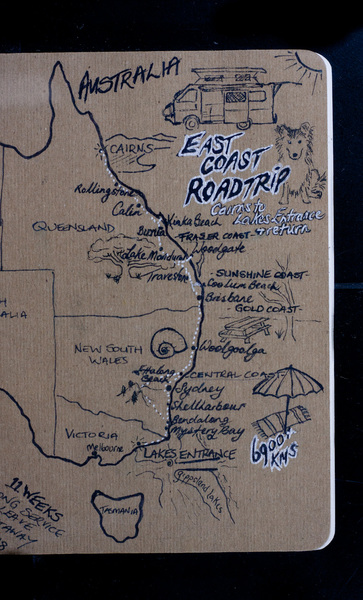 AUSTRALIA
EAST
COAST
ROADTRIP
Cairns to
Lakes Entrance
+ return
CAIRNS
Rollingstone
Calen
Kinka Beach
QUEENSLAND
FRASER COAST
Lake Monduran
Woodgate
Traveston
-SUNSHINE COAST-
Coolum Beach
Brisbane
-GOLD COAST-
NEW SOUTH
WALES
Woolgoolga
-CENTRAL COAST-
Beach
Sydney
Shellharbour
Bendalong
Mystery Bay
VICTORIA
Melbourne
LAKES ENTRANCE
Gippsland Lakes
6900
KMS
TASMANIA
11 WEEKS
LONG SERVICE
LEAVE